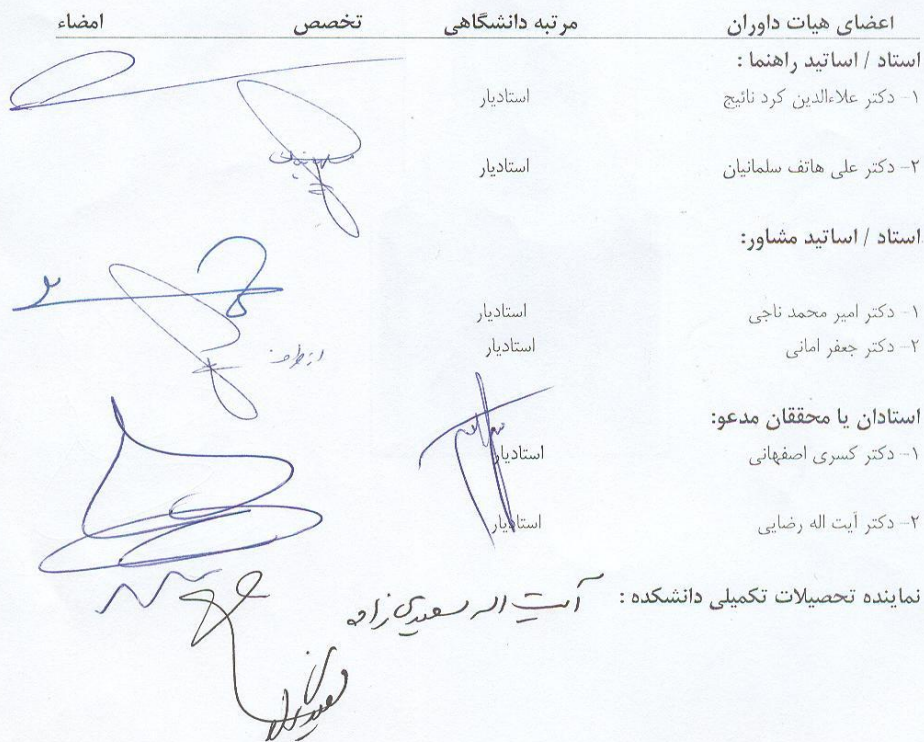 اعضای هیات داوران مرتبه دانشگاهی تخصص امضاء
استاد / اساتید راهنما :
۱- دکتر علاءالدین کرد نائیج استادیار
۲- دکتر علی هاتف سلمانیان استادیار
استاد / اساتید مشاور:
۱- دکتر امیر محمد ناجی استادیار
۲- دکتر جعفر امانی استادیار
از طرف
استادان یا محققان مدعو:
۱- دکتر کسری اصفهانی استادیار
۲- دکتر آیت اله رضایی استادیار
نماینده تحصیلات تکمیلی دانشکده : آیت اله سعیدی زاده